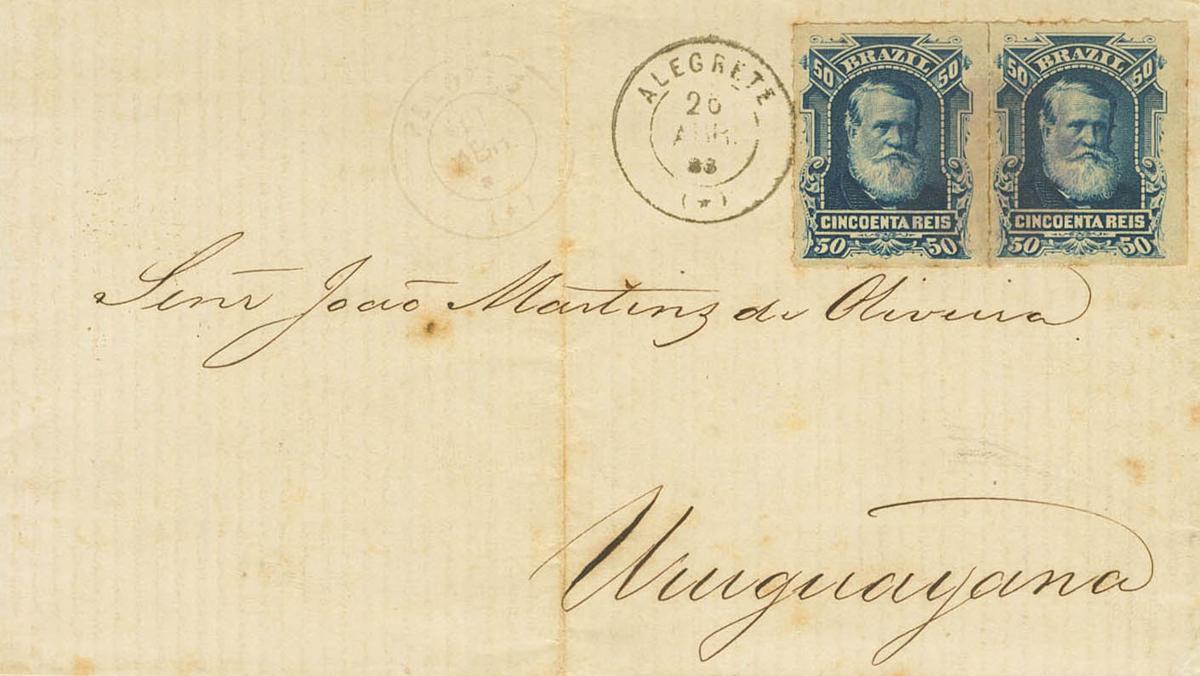 BRAZIL
50 50
CINCOENTA REIS
50 50
BRAZIL
50 50
CINCOENTA REIS
50 50
ALEGRETE
26
ABR.
83
(*)
PELOTAS
ABR
(*)
Senr João Martins de Oliveira
Uruguayana